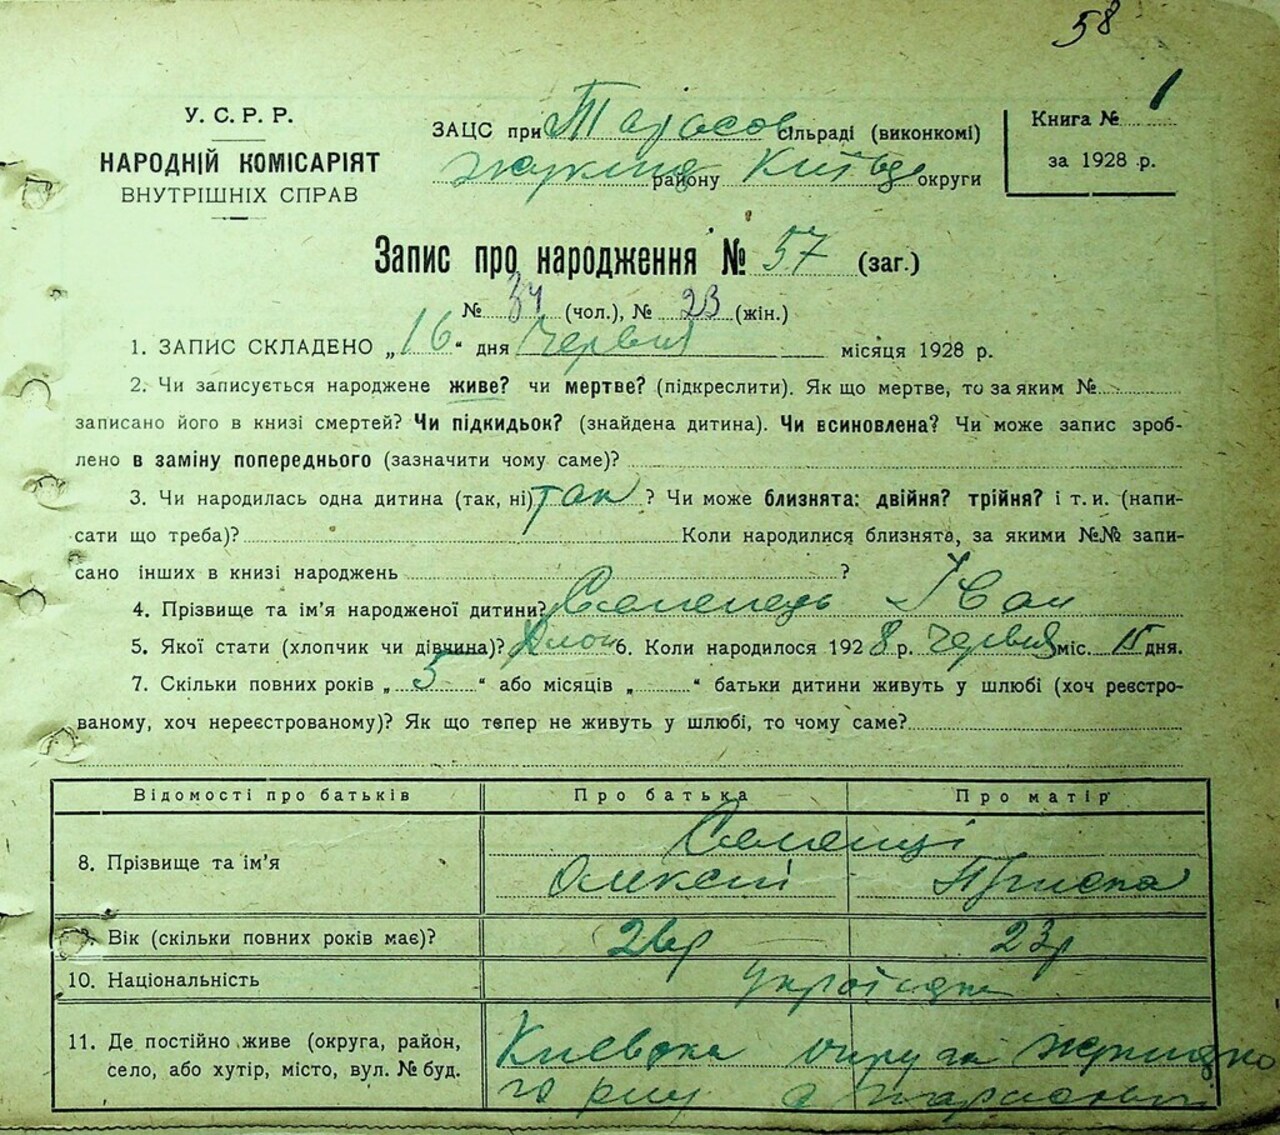 58
У. С. Р. Р.
НАРОДНІЙ КОМІСАРІЯТ
ВНУТРІШНІХ СПРАВ
ЗАЦС при Тарасов сільраді (виконкомі)
району Київсь округи
Книга № 1
за 1928 р.
Запис про народження № 57 (заг.)
№ 34 (чол.), № 23 (жін.)
1. ЗАПИС СКЛАДЕНО „16“ дня Червня місяця 1928 р.
2. Чи записується народжене живе? чи мертве? (підкреслити). Як що мертве, то за яким №
записано його в книзі смертей? Чи підкидьок? (знайдена дитина). Чи всиновлена? Чи може запис зроб-
лено в заміну попереднього (зазначити чому саме)?
3. Чи народилась одна дитина (так, ні) так ? Чи може близнята: двійня? трійня? і т. и. (напи-
сати що треба)? Коли народилися близнята, за якими №№ запи-
сано інших в книзі народжень ?
4. Прізвище та ім’я народженої дитини? Іван
5. Якої стати (хлопчик чи дівчина)? 6. Коли народилося 1928 р. Червня міс. 15 дня.
7. Скільки повних років „5“ або місяців „ “ батьки дитини живуть у шлюбі (хоч реєстро-
ваному, хоч нереєстрованому)? Як що тепер не живуть у шлюбі, то чому саме?
Відомості про батьків Про батька Про матір
8. Прізвище та ім’я
Олексій
9. Вік (скільки повних років має)? 26р 23р
10. Національність
11. Де постійно живе (округа, район, Київська округа
село, або хутір, місто, вул. № буд.